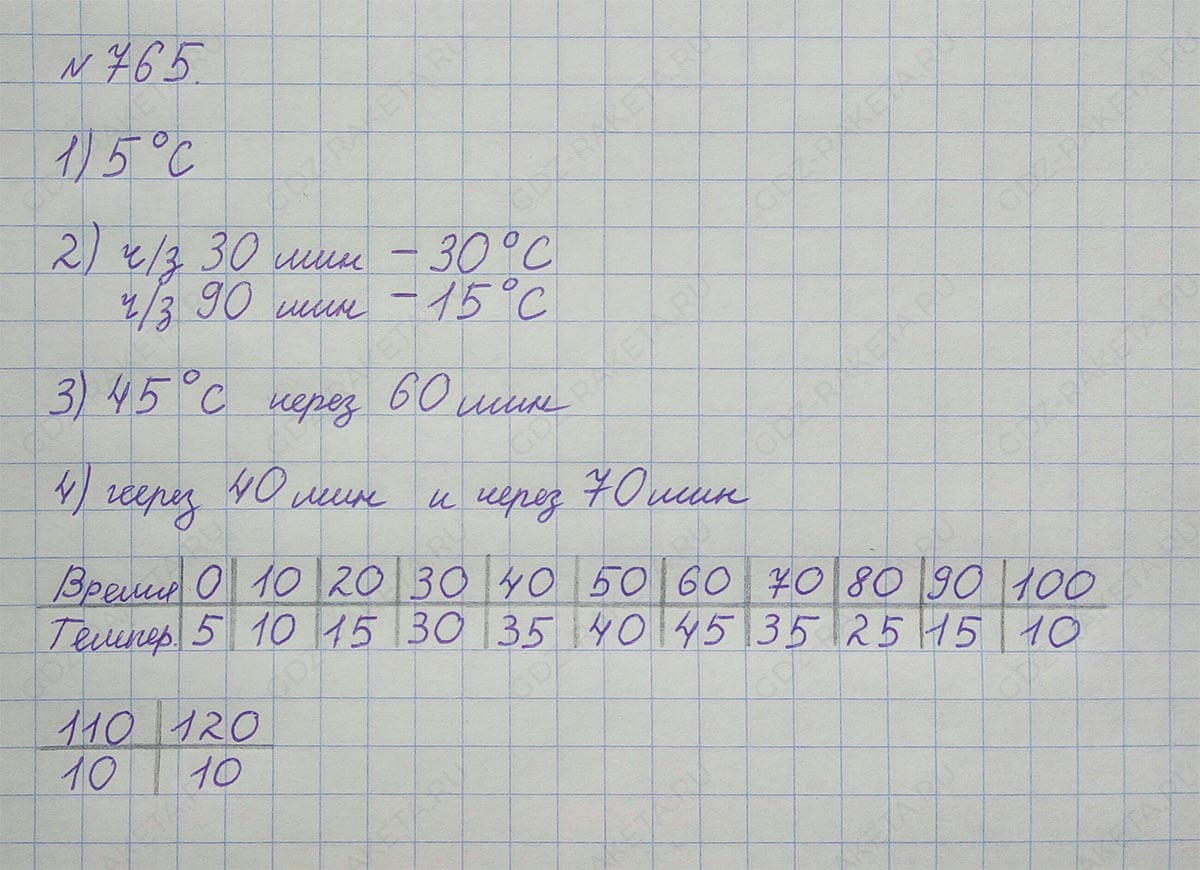 № 765.
1) 5°C
2) ч/з 30 мин – 30°C
ч/з 90 мин – 15°C
3) 45°C через 60 мин
4) через 40 мин и через 70 мин
Время 0 10 20 30 40 50 60 70 80 90 100
Темпер. 5 10 15 30 35 40 45 35 25 15 10
110 120
10 10
GDZ-RAKETA.RU